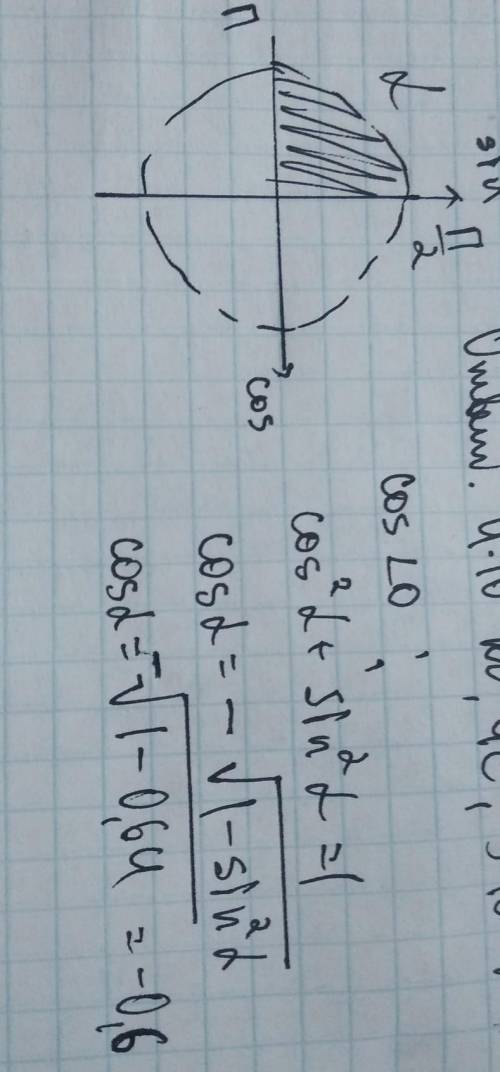 sin
α
π
π/2
cos
cos<0
cos²α + sin²α = 1
cosα = -√(1-sin²α)
cosα = -√(1-0,64) = -0,6